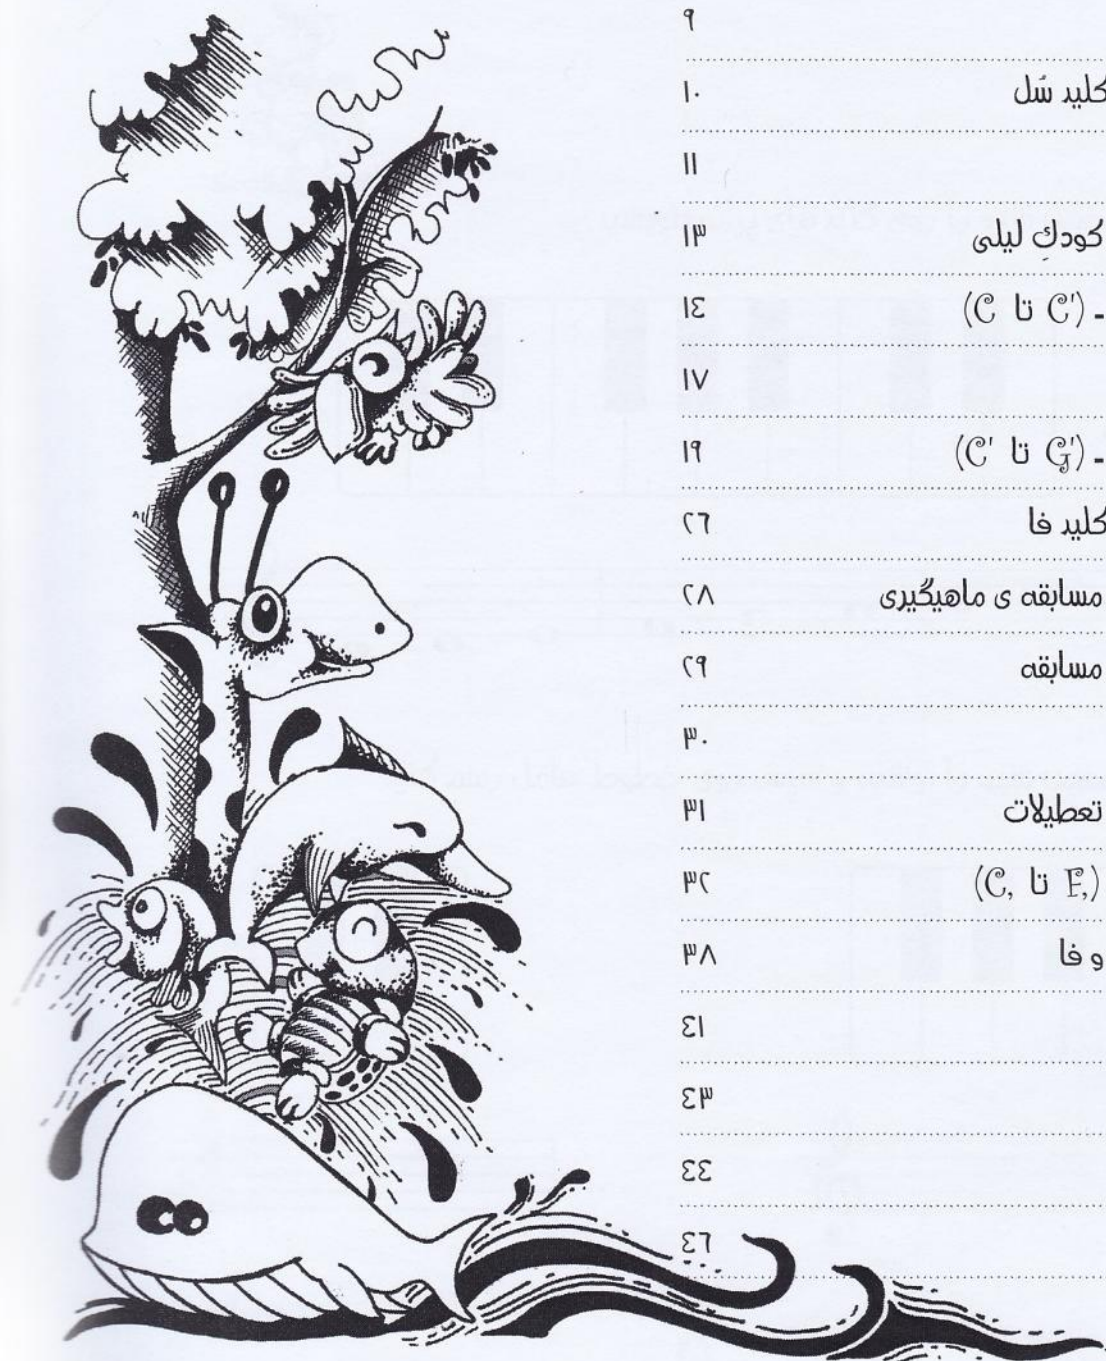 ۹
کلید سُل ۱۰
۱۱
کودکِ لیلی ۱۳
(C تا C') - ۱٤
۱۷
(C' تا G') - ۱۹
کلید فا ۲٦
مسابقه ی ماهیگیری ۲۸
مسابقه ۲۹
۳۰
تعطیلات ۳۱
(C, تا F,) ۳۲
و فا ۳۸
٤۱
٤۳
٤٤
٤٦